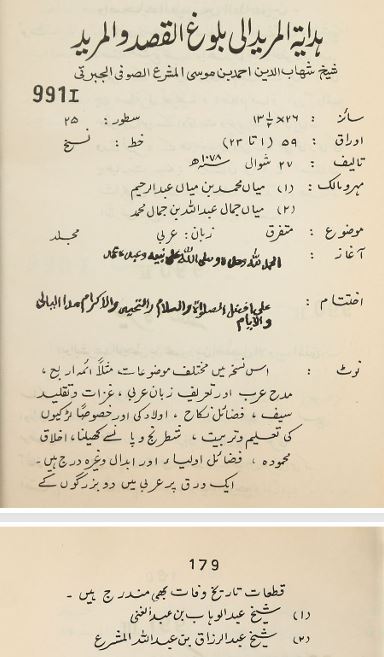 ہدایة المرید الی بلوغ القصد والمرید
شیخ شہاب الدین احمد بن موسی المشرع الصوفی الجبرتی
991I
سائز : ۲۶ × ۱۳ ۱/۲ سطور : ۲۵
اوراق : ۵۹ (۱ تا ۲۳) خط : نسخ
تالیف : ۲۷ شوال ۱۰۷۸ھ
مہر و مالک : (۱) میاں محمد بن میاں عبدالرحیم
(۲) میاں جمال عبداللہ بن جمال محمد
موضوع : متفرق زبان : عربی مجلد
آغاز : الحمد للہ وحدہ وصلی اللہ علی نبیہ وعبدہ
اختتام : علی افضل الصلاة والسلام والتحیہ والاکرام مدا اللیالی
والایام
نوٹ : اس نسخہ میں مختلف موضوعات مثلاً ائمہ اربع ،
مدح عرب اور تعریف زبان عربی ، غزات و تقلید
سیف ، فضائل نکاح ، اولاد کی اور خصوصاً لڑکیوں
کی تعلیم و تربیت ، شطرنج و پانسے کھیلنا ، اخلاق
محمودہ ، فضائل اولیاء اور ابدال وغیرہ درج ہیں ۔
ایک ورق پر عربی میں دو بزرگوں کے
179
قطعات تاریخ وفات بھی مندرج ہیں ۔
(۱) شیخ عبدالوہاب بن عبدالغنی
(۲) شیخ عبدالرزاق بن عبداللہ المشرع